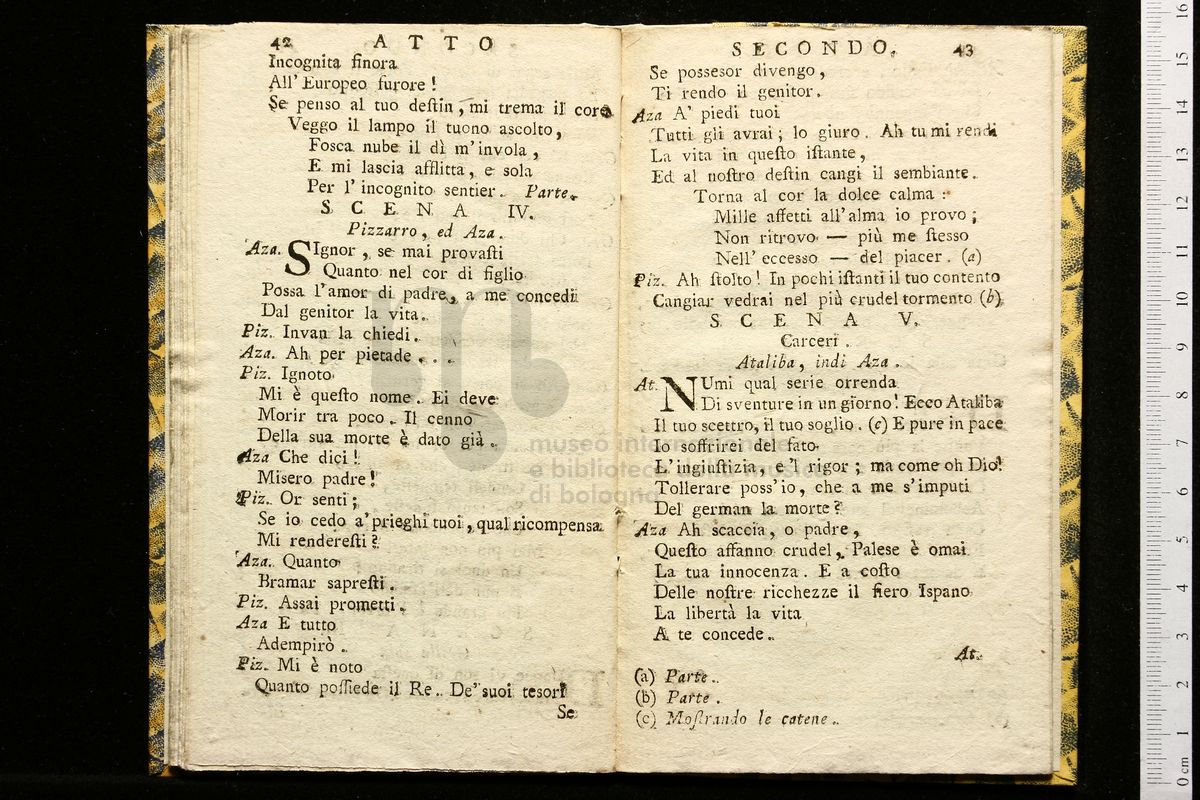 42 ATTO
Incognita finora
All' Europeo furore!
Se penso al tuo destin, mi trema il core
Veggo il lampo il tuono ascolto,
Fosca nube il dì m'invola,
E mi lascia afflitta, e sola
Per l' incognito sentier. Parte.
SCENA IV.
Pizzarro, ed Aza.
Aza. SIgnor, se mai provasti
Quanto nel cor di figlio
Possa l'amor di padre, a me concedi
Dal genitor la vita.
Piz. Invan la chiedi.
Aza. Ah per pietade . . .
Piz. Ignoto
Mi è questo nome. Ei deve
Morir tra poco. Il cenno
Della sua morte è dato già.
Aza Che dici!
Misero padre!
Piz. Or senti;
Se io cedo a' prieghi tuoi, qual ricompensa
Mi renderesti?
Aza. Quanto
Bramar sapresti.
Piz. Assai prometti.
Aza E tutto
Adempirò.
Piz. Mi è noto
Quanto possiede il Re. De' suoi tesori
Se
SECONDO. 43
Se possesor divengo,
Ti rendo il genitor.
Aza A' piedi tuoi
Tutti gli avrai; lo giuro. Ah tu mi rendi
La vita in questo istante,
Ed al nostro destin cangi il sembiante.
Torna al cor la dolce calma:
Mille affetti all'alma io provo;
Non ritrovo — più me stesso
Nell' eccesso — del piacer. (a)
Piz. Ah stolto! In pochi istanti il tuo contento
Cangiar vedrai nel più crudel tormento (b)
SCENA V.
Carceri.
Ataliba, indi Aza.
At. NUmi qual serie orrenda
Di sventure in un giorno! Ecco Ataliba
Il tuo scettro, il tuo soglio. (c) E pure in pace
Io soffrirei del fato
L'ingiustizia, e 'l rigor; ma come oh Dio!
Tollerare poss'io, che a me s'imputi
Del german la morte?
Aza Ah scaccia, o padre,
Questo affanno crudel, Palese è omai
La tua innocenza. E a costo
Delle nostre ricchezze il fiero Ispano
La libertà la vita
A te concede.
At.
(a) Parte.
(b) Parte.
(c) Mostrando le catene.